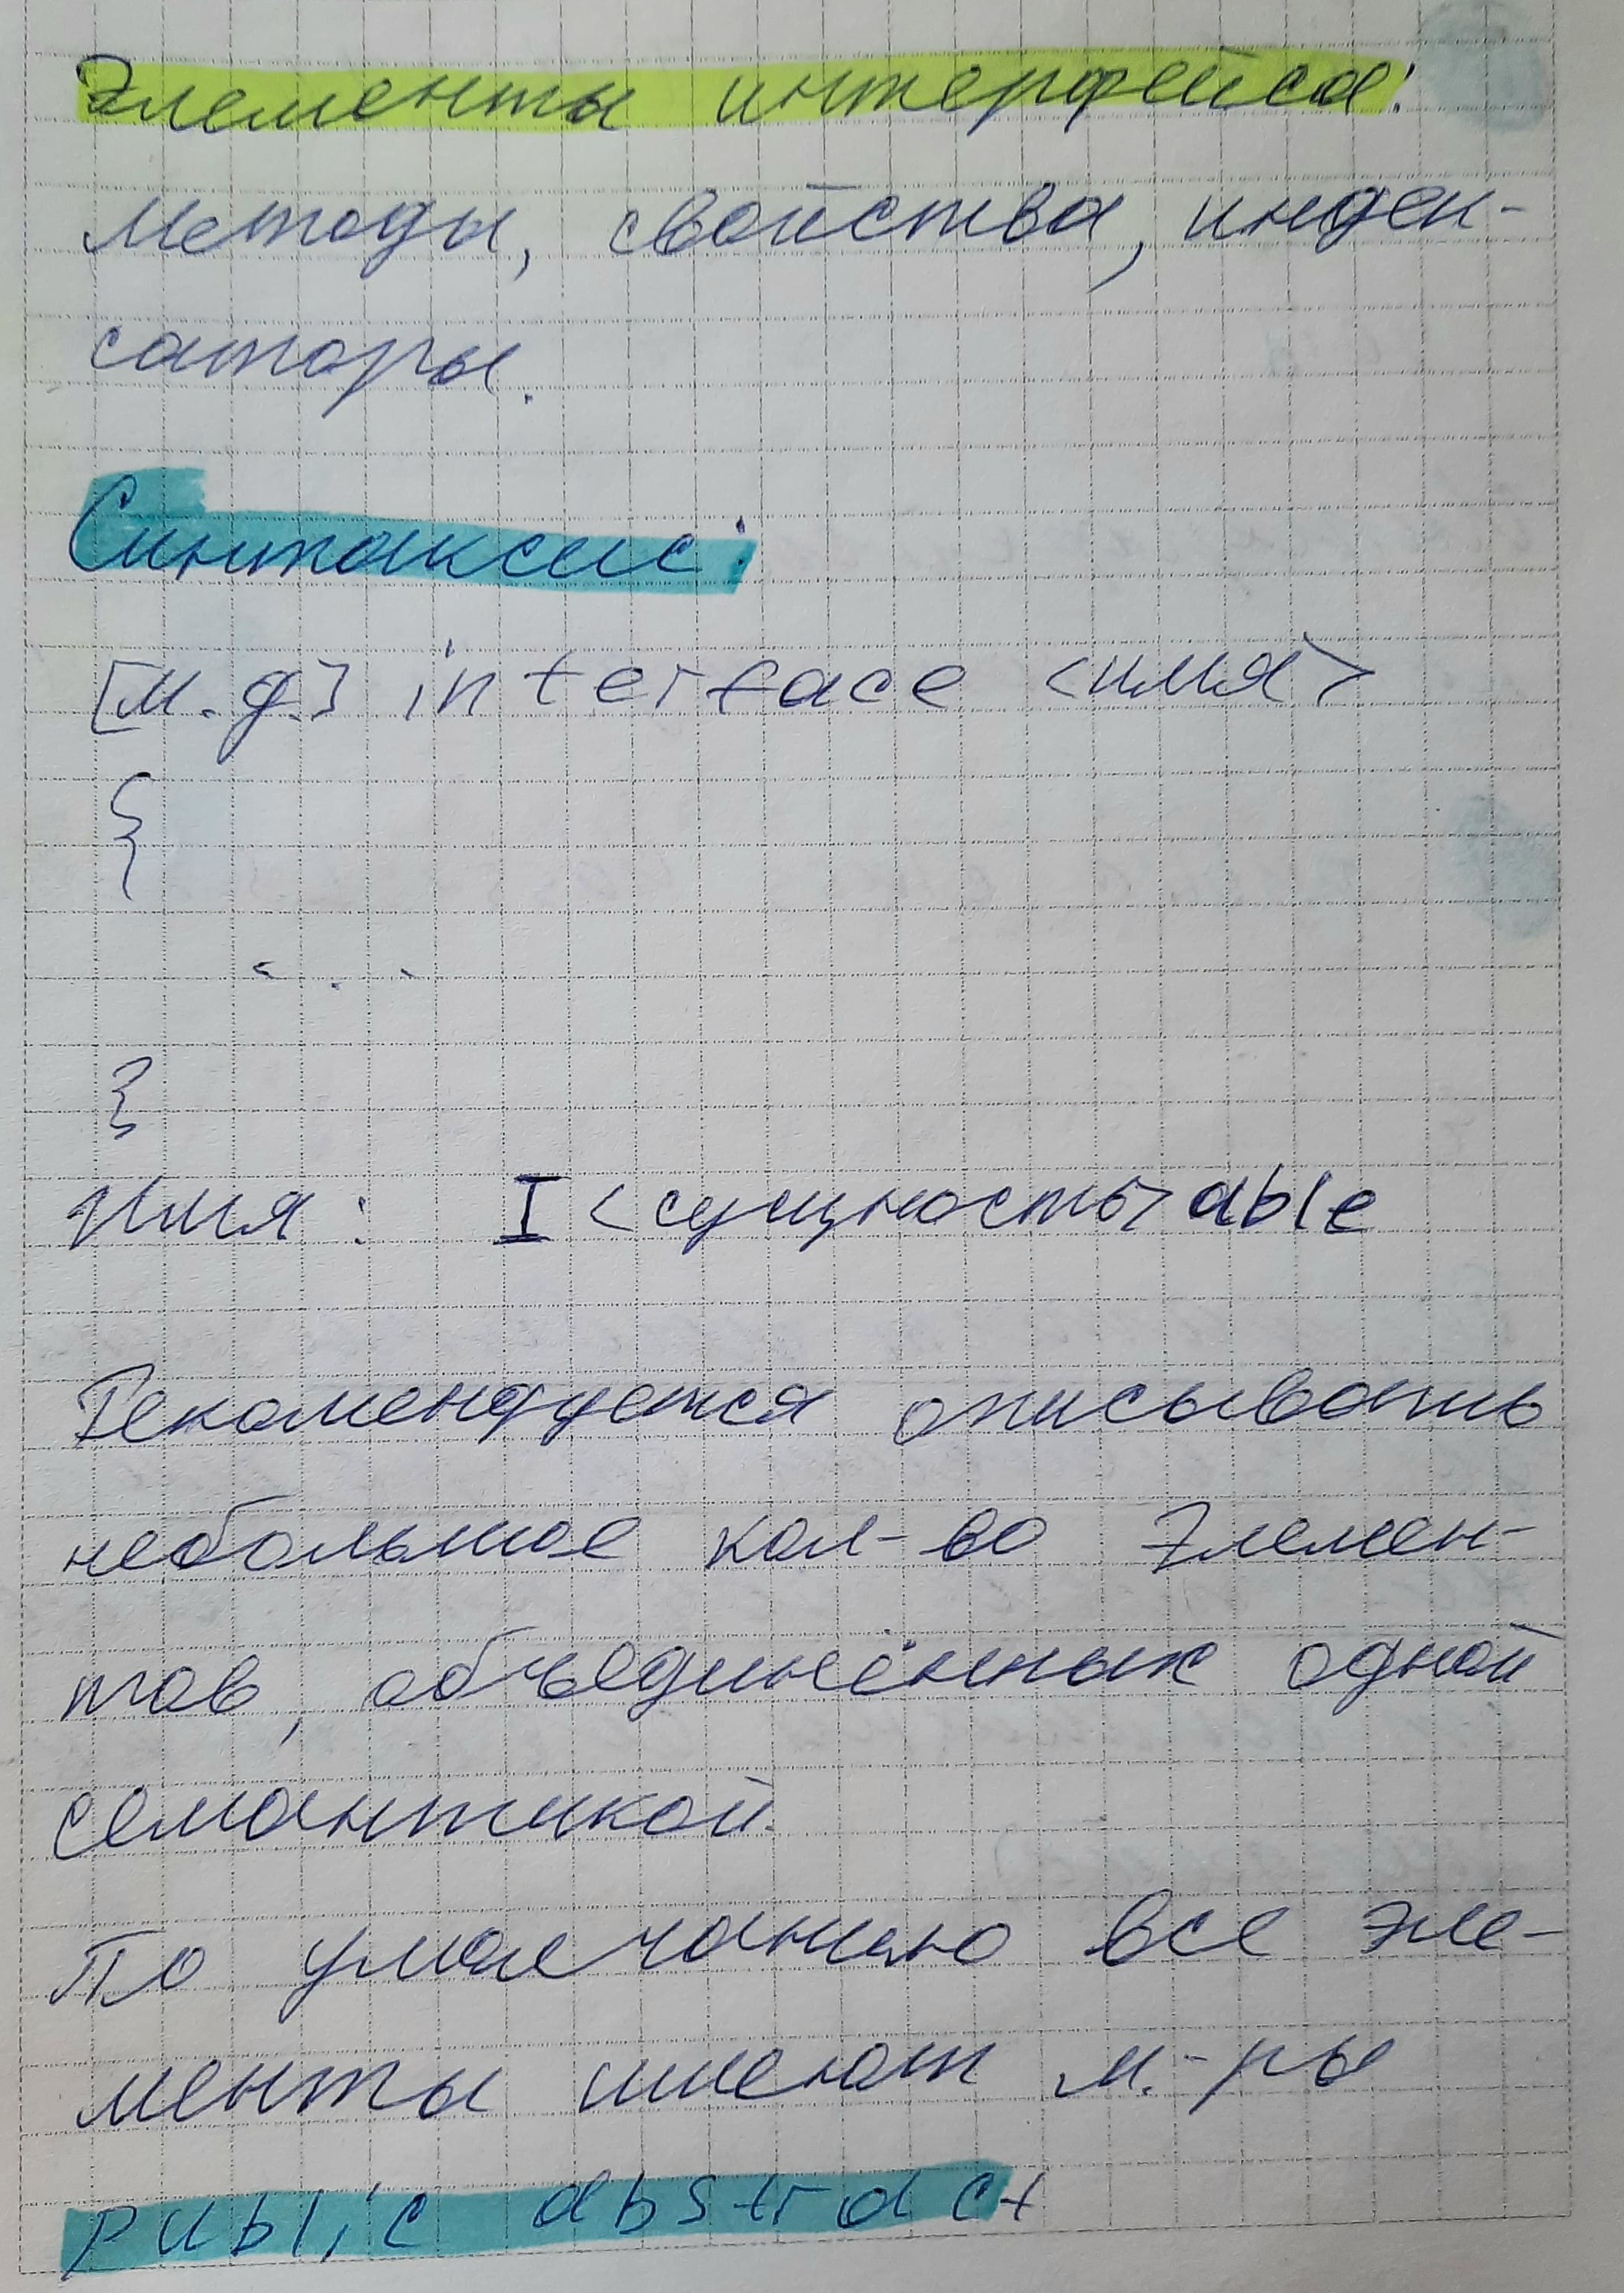 Элементы интерфейса:
Методы, свойства, индек-
саторы.
Синтаксис:
[м.д.] interface <имя>
{
...
}
Имя: I<сущность>able
Рекомендуется описывать
небольшое кол-во элемен-
тов, объединённых одной
семантикой.
По умолчанию все эле-
менты имеют м.-ры
public abstract